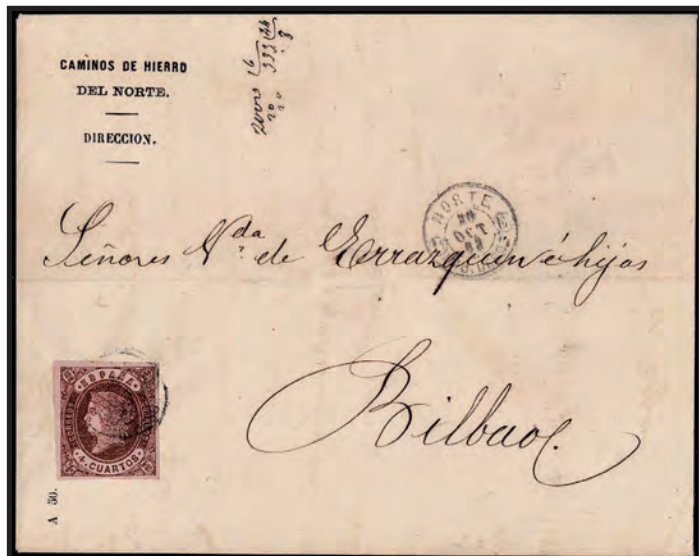 CAMINOS DE HIERRO
DEL NORTE.
DIRECCION.
NORTE
OCT
Señores V.da de Errazquin é hijos
Bilbao
ESPAÑA
4 CUARTOS
A 50.